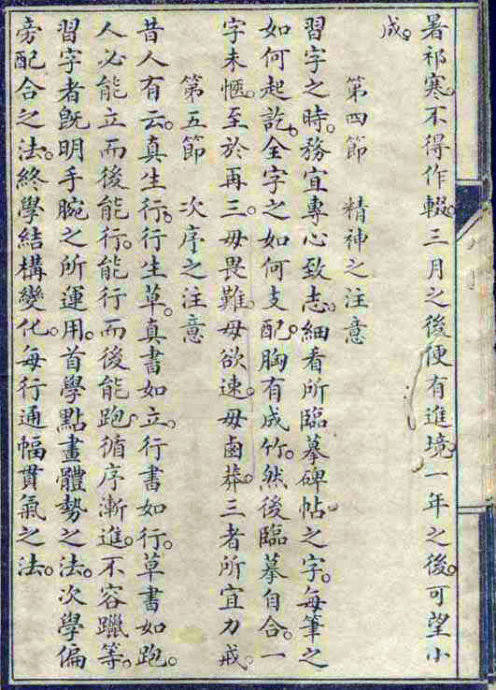 暑祁寒。不得作輟。三月之後。便有進境。一年之後。可望小
成。
第四節　精神之注意
習字之時。務宜專心致志。細看所臨摹碑帖之字。每筆之
如何起訖。全字之如何支配。胸有成竹。然後臨摹自合。一
字未愜。至於再三。毋畏難。毋欲速。毋鹵莽。三者所宜力戒。
第五節　次序之注意
昔人有云。真生行。行生草。真書如立。行書如行。草書如跑。
人必能立而後能行。能行而後能跑。循序漸進。不容躐等。
習字者既明手腕之所運用。首學點畫體勢之法。次學偏
旁配合之法。終學結構變化。每行通幅貫氣之法。